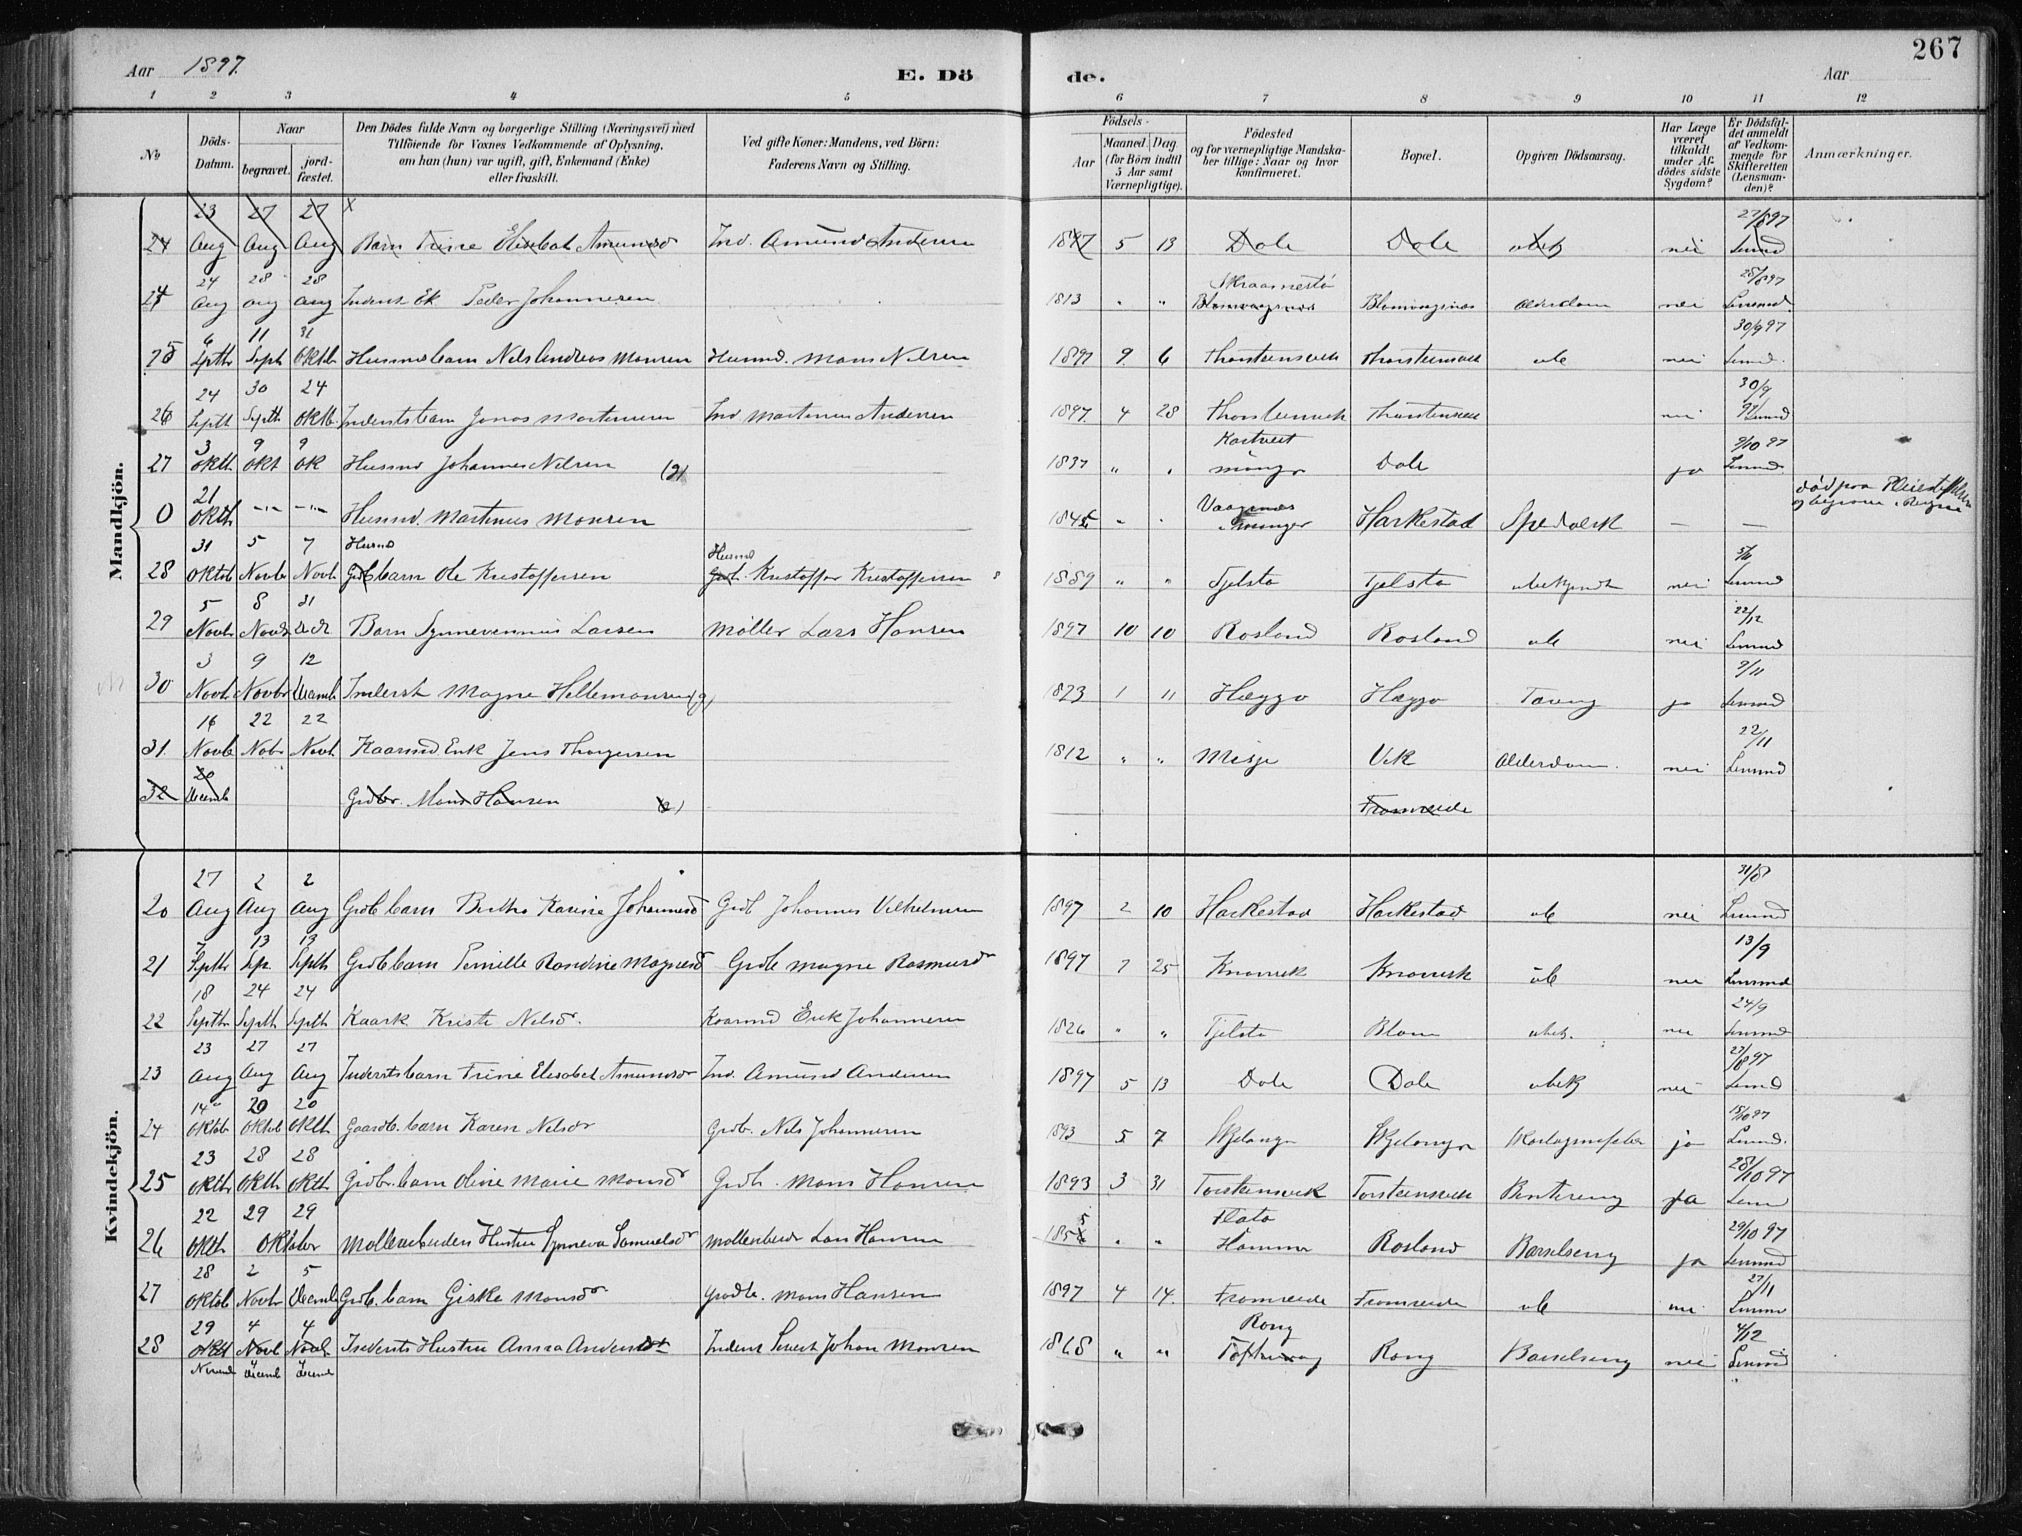 267
Aar 1897. E. Dö de. Aar
1 2 3 4 5 6 7 8 9 10 11 12
No
Döds-Datum.
Naar
begravet.
jord-fæstet.
Den Dödes fulde Navn og borgerlige Stilling (Næringsvei) med
Tilföiende for Voxnes Vedkommende af Oplysning,
om han (hun) var ugift, gift, Enkemand (Enke)
eller fraskilt.
Ved gifte Koner: Mandens, ved Börn:
Faderens Navn og Stilling.
Födsels-
Aar
Maaned. Dag.
(for Börn indtil
5 Aar samt
Værnepligtige).
Födested
og for værnepligtige Mandska-
ber tillige: Naar og hvor
konfirmeret.
Bopæl.
Opgiven Dödsaarsag.
Har Læge
været
tilkaldt
under Af-
dödes sidste
Sygdom?
Er Dödsfal-
det anmeldt
af Vedkom-
mende for
Skifteretten
(Lensman-
den)?
Anmærkninger.
Mandkjön.
24 23 Aug 27 Aug 27 Aug Barn Trine Elisabet Amundsd Ind. Amund Andersen 1897 5 13 Dale Dale ubek nei 27/8 97 Lensmd
24 24 Aug 28 Aug 28 Aug Inderst Ek. Peder Johannesen 1813 " " Skraanestø Blomvaagnæs Blomvaagnæs Alderdom nei 28/8 97 Lensmd.
25 6 Septbr 11 Septb 31 Oktbr Husmdsbarn Nils Andreas Monsen Husmd. Mons Nilsen 1897 9 6 Thorsteinsvik Thorsteinsvik ub nei 30/9 97 Lensmd.
26 24 Septb 30 Septb 24 Oktb Inderstsbarn Jonas Martinusen Ind Martinus Andersen 1897 4 28 Thorsteinsvik Thorsteinsvik nei 30/9 97 Lensmd
27 3 Oktb 9 Okt 9 Ok Husmd Johannes Nilsen (2) 1837 " " Manger Dale ja 9/10 97 Lensmd
0 21 Oktb -"- -"- Husmd. Martinus Monsen " " Manger Harkestad Spedalsk — — død paa Pleiestiftelsen
28 31 Oktob 5 Novbr 7 Novb Husmd Grdb barn Ole Kristoffersen Husmd Grdb. Kristoffer Kristoffersen 1889 " " Tjelstø Tjelstø ubekjendt nei Lensmd
29 5 Novb 8 Novb 31 Dcbr Barn Synnevennius Larsen Møller Lars Hansen 1897 10 10 Rosland Rosland ub nei 22/12 Lensmd
30 3 Novb 9 Novbr 12 Decemb Inderst Magne Hellemonsen (g) 1823 1 11 Hæggø Hæggø Tæring ja 9/11 Lensmd
31. 16 Novb 22 Nobr 22 Novb Kaarmd Enk Jens Thorgersen 1812 " " Misje Vik Alderdom. nei 22/11 Lensmd
32 20 Decemb Grdbr. Mons Hansen Fromreide
Kvindekjön.
20 27 Aug 2 Aug 2 Aug Grdb barn Birthe Karine Johannesd Grdb Johannes Vilhelmsen 1897 2 10 Harkestad Harkestad ub nei 31/8 Lensmd
21 7 Septbr 13 Sep. 13 Septb Grdb barn Pernille Randine Magnesdr Grdb Magne Rasmussen 1897 7 25 Knarvik Knarvik ub nei 13/9 Lensmd
22 18 Septb 24 Septb 24 Septb Kaark. Kristi Nilsdr. Kaarmd Erik Johannesen 1826 " " Tjelstø Blom ubek. nei 24/9 Lensmd
23 23 Aug 27 Aug 27 Aug Inderstsbarn Trine Elisabet Amundsdr Ind. Amund Andersen 1897 5 13 Dale Dale ubek nei 27/8 97 Lensmd
24 14 Oktob 20 Oktob 20 Oktb. Gaardb. barn Karen Nilsdr Grdb. Nils Johannesen 1893 5 7 Skjelanger Skjelanger ja 15/10 97 Lensmd.
25 23 Oktbr 28 Oktb 28 Oktb Grdbr. barn Oline Marie Monsdr Grdb. Mons Hansen 1893 3 31 Torsteinsvik Torsteinsvik ja 28/10 97 Lensm
26 22 Oktb 29 29 Oktober Møllearbeiders Hustru Synneva Samuelsdr Møllearbeider Lars Hansen 1855 " " Flatø Hammer Rosland Barselseng ja 29/10 97 Lensmd
27 28 Oktob 2 Novbr 5 Decemb Grdb. barn Giske Monsdr Grdb. Mons Hansen 1897 4 14. Fromreide Fromreide ub nei 27/11 Lensmd
28 29 Oktb 4 Novb 4 Novb Novemb Decemb Decemb Indersts Hustru Anna Andersdtr Inderst Sivert Johan Monsen 1868 " " Rong Rong Barselseng nei 4/12 Lensmd